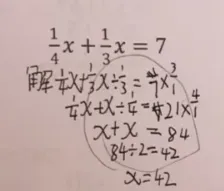 1/4 x + 1/3 x = 7
解 1/4 x + 1/3 x ÷ 1/3 = 7 × 3/1
1/4 x + x ÷ 1/4 = 21 × 4/1
x + x = 84
84 ÷ 2 = 42
x = 42